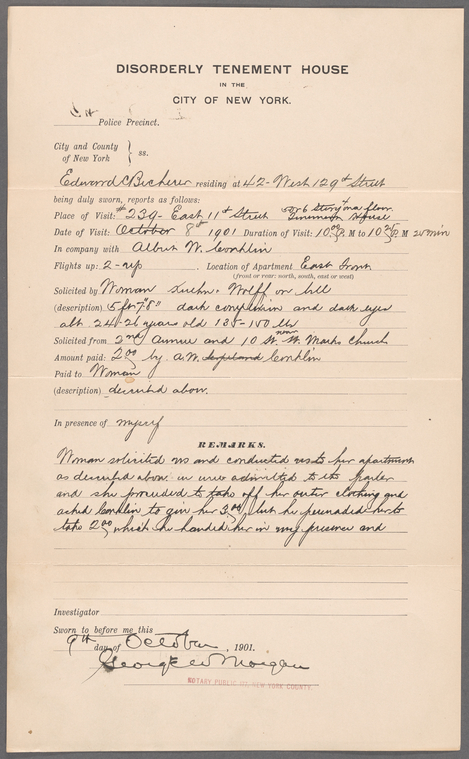 DISORDERLY TENEMENT HOUSE
IN THE
CITY OF NEW YORK.
Police Precinct.
City and County
of New York } ss.
Edward C residing at 42- West 129th Street
being duly sworn, reports as follows:
Place of Visit: #239- East 11th Street 5 or 6 story floor
House
Date of Visit: October 8th 1901 Duration of Visit: 10 P. M to 10 P. M 20 min
In company with Albert W. Conklin
Flights up: 2-up Location of Apartment East Front
(front or rear: north, south, east or west)
Solicited by Woman Wolff on bell
(description) 5 ft 7"8" dark complexion and dark eyes
abt 24-26 years old 135-150 lbs
Solicited from 2nd Avenue and 10 St. near St. Marks Church
Amount paid: 2.00 by A.W. Conklin
Paid to Woman
(description) described above.
In presence of myself
REMARKS.
Woman solicited us and conducted us to her apartment
as described above. we were admitted to the parlor
and she proceeded to take off her outer clothing and
asked Conklin to give her 3.00, but he persuaded her to
take 2.00 which he handed her in my presence and
Investigator
Sworn to before me this
9th day of October, 1901.
George W Morgan
NOTARY PUBLIC NEW YORK COUNTY.